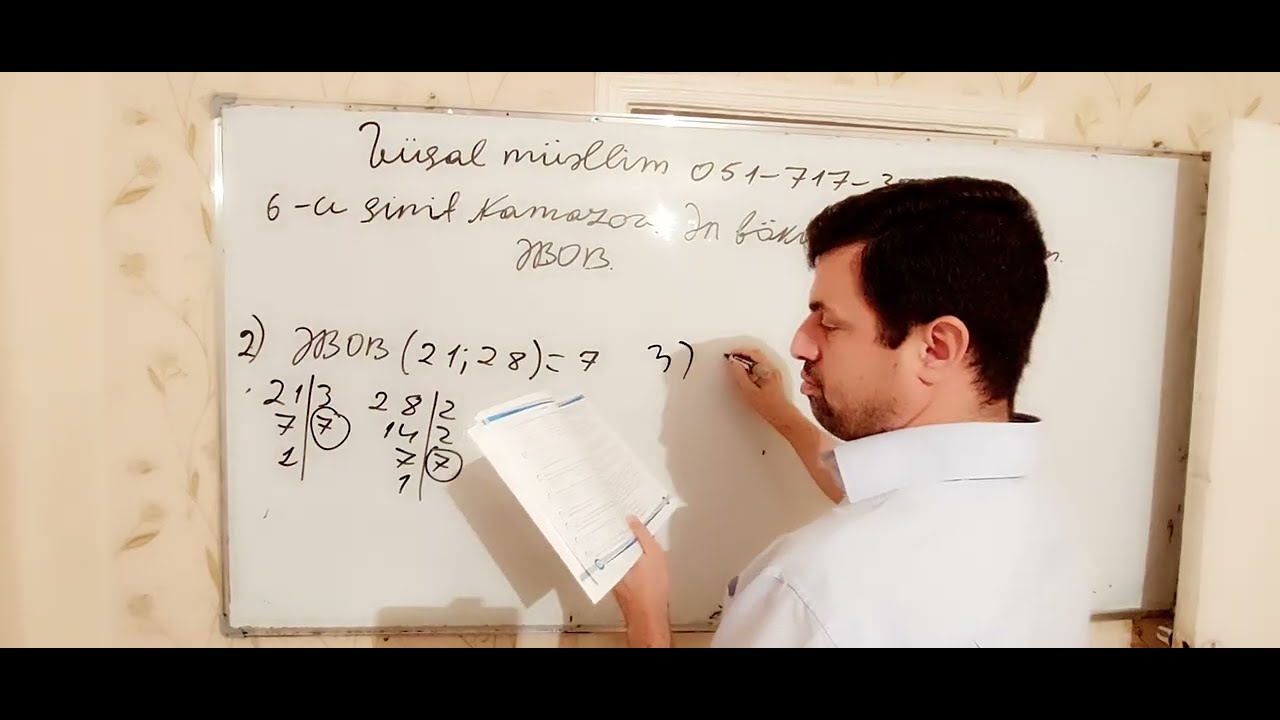 Vüsal müəllim 051-717-3
6-cı sinif Namazov. Ən böyü
ƏBOB.
2) ƏBOB (21; 28) = 7
21 | 3
7 | 7
1
28 | 2
14 | 2
7 | 7
1
3)